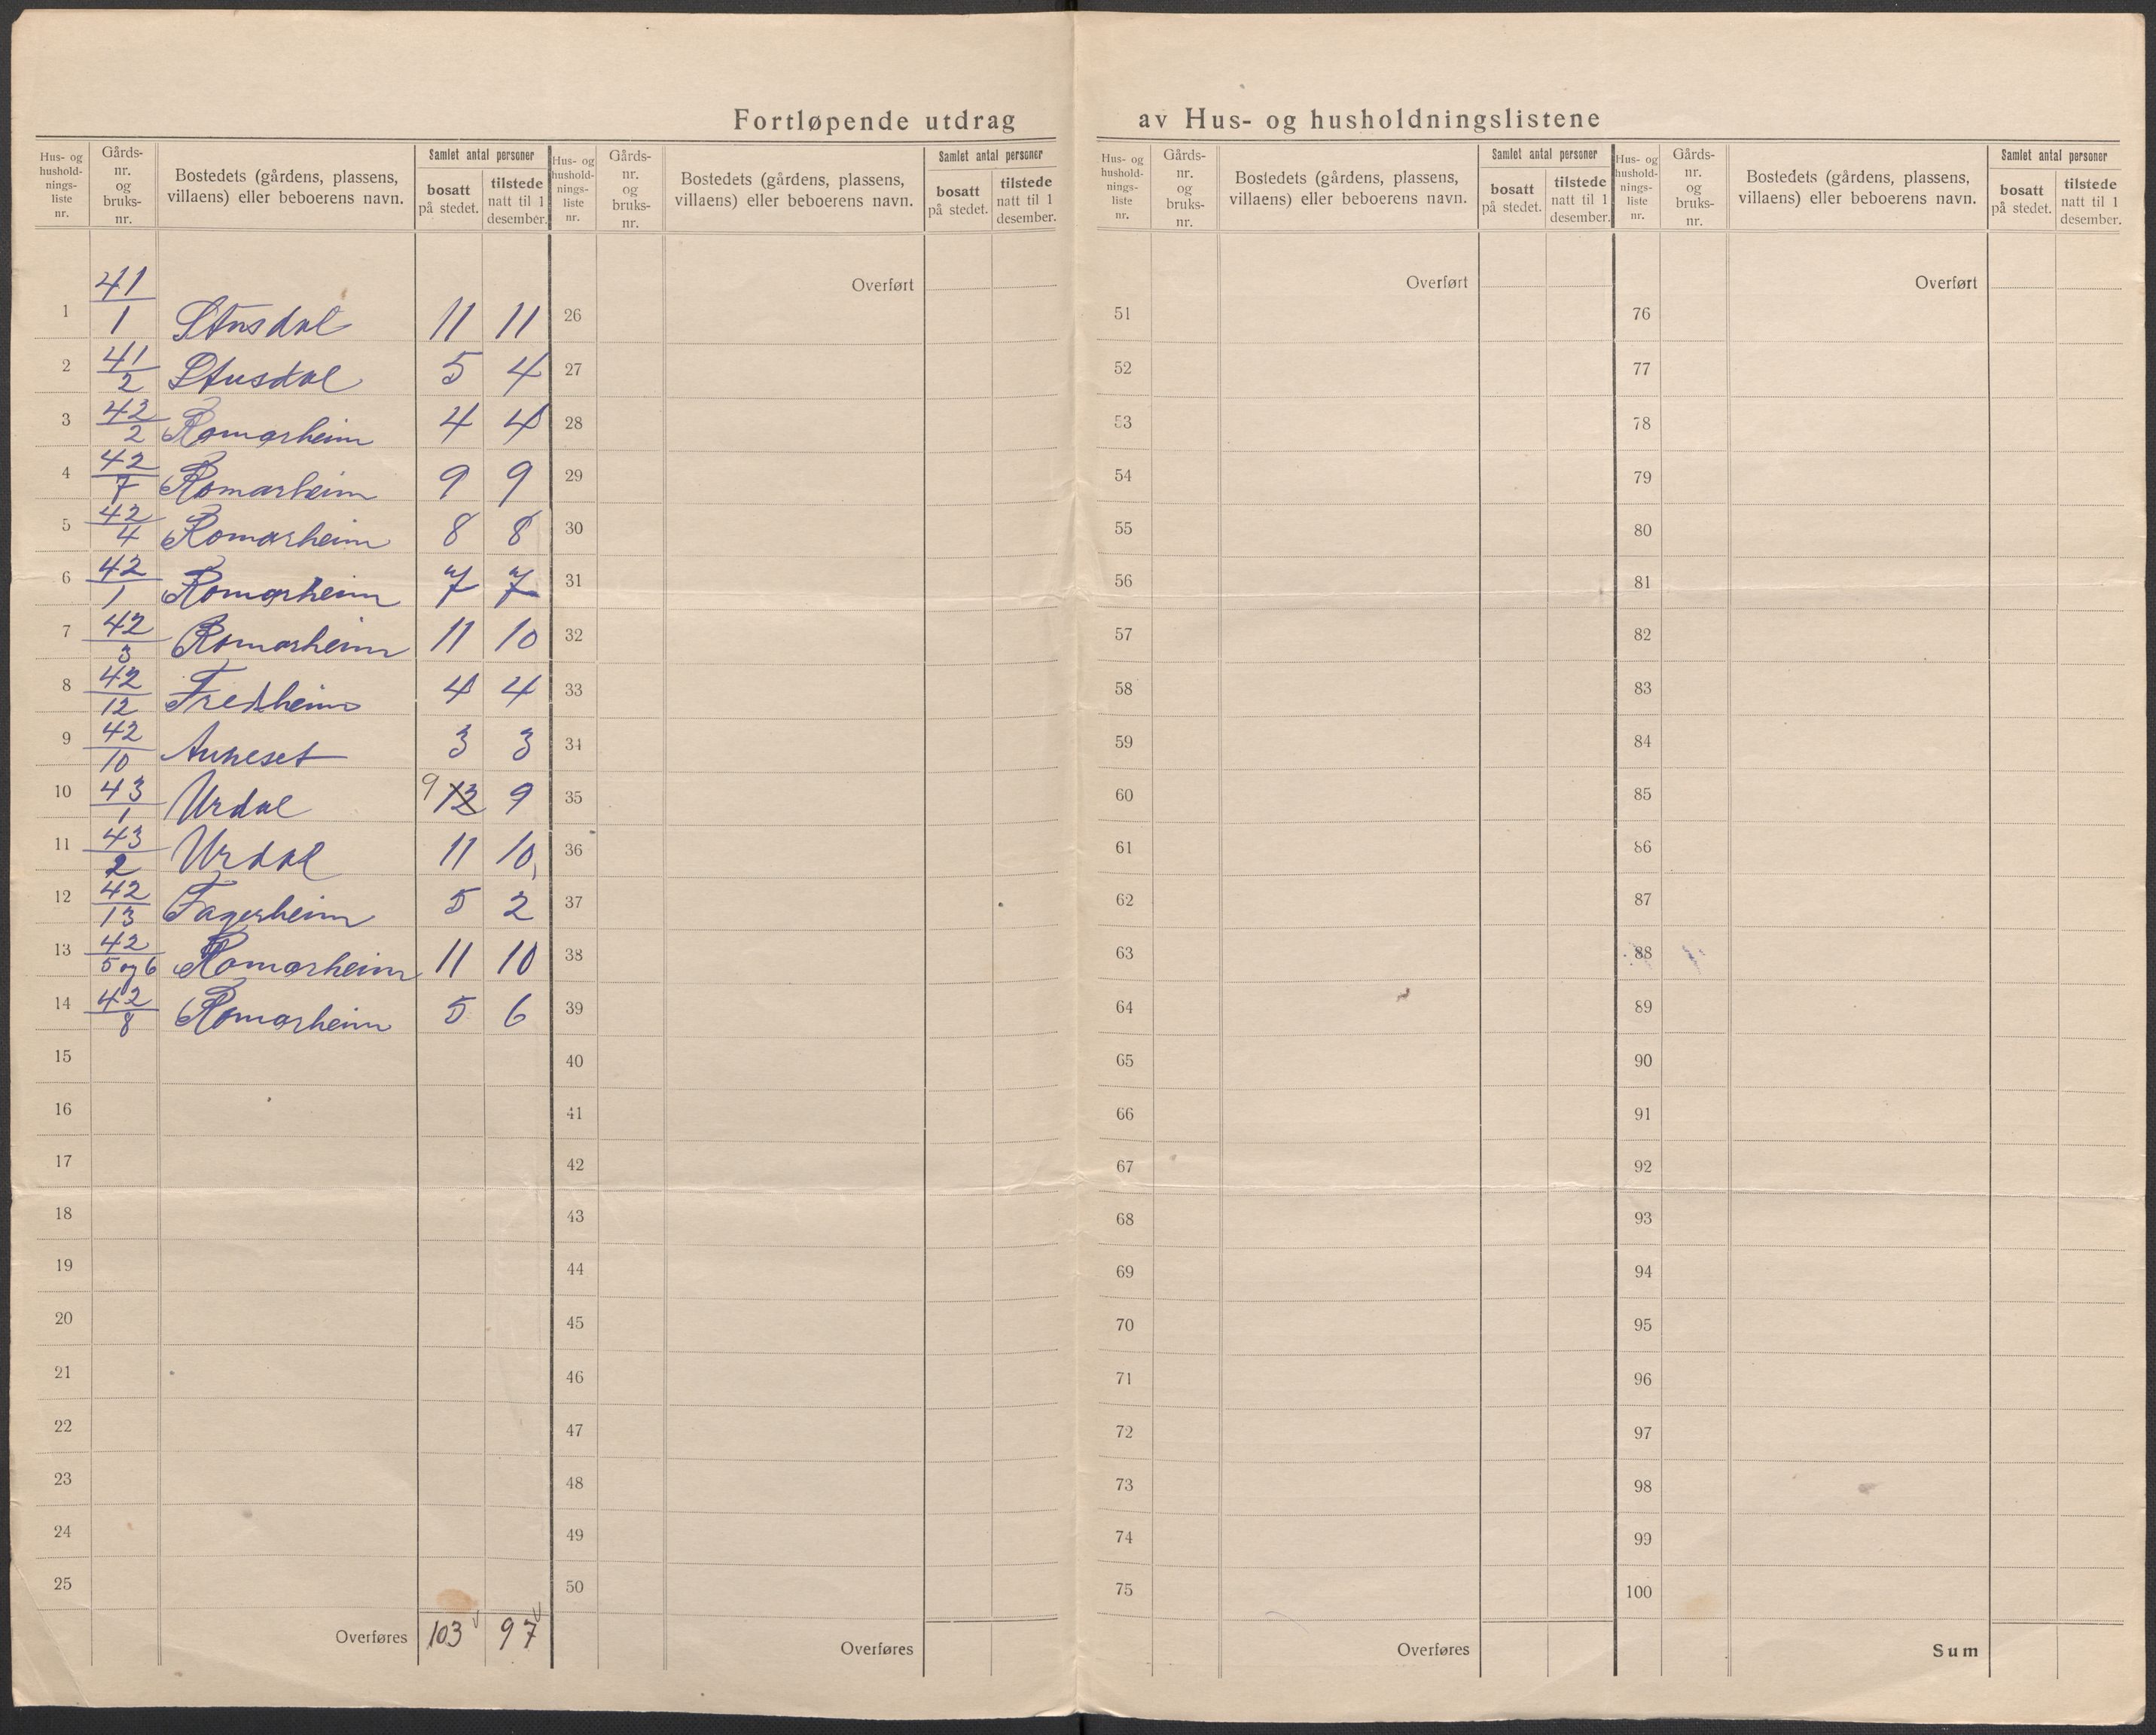 Fortløpende utdrag av Hus- og husholdningslistene
Hus- og hushold-nings-liste nr. Gårds-nr. og bruks-nr. Bostedets (gårdens, plassens, villaens) eller beboerens navn. Samlet antal personer bosatt på stedet. tilstede natt til 1 desember.
1 41/1 Stusdal 11 11
2 41/2 Stusdal 5 4
3 42/2 Romarheim 4 4
4 42/7 Romarheim 9 9
5 42/4 Romarheim 8 8
6 42/1 Romarheim 7 7
7 42/3 Romarheim 11 10
8 42/12 Fredheim 4 4
9 42/10 Anneset 3 3
10 43/1 Urdal 9 12 9
11 43/2 Urdal 11 10
12 42/13 Fagerheim 5 2
13 42/5 og 6 Romarheim 11 10
14 42/8 Romarheim 5 6
15
16
17
18
19
20
21
22
23
24
25
Overføres 103 97
Hus- og hushold-nings-liste nr. Gårds-nr. og bruks-nr. Bostedets (gårdens, plassens, villaens) eller beboerens navn. Samlet antal personer bosatt på stedet. tilstede natt til 1 desember.
Overført
26
27
28
29
30
31
32
33
34
35
36
37
38
39
40
41
42
43
44
45
46
47
48
49
50
Overføres
Hus- og hushold-nings-liste nr. Gårds-nr. og bruks-nr. Bostedets (gårdens, plassens, villaens) eller beboerens navn. Samlet antal personer bosatt på stedet. tilstede natt til 1 desember.
Overført
51
52
53
54
55
56
57
58
59
60
61
62
63
64
65
66
67
68
69
70
71
72
73
74
75
Overføres
Hus- og hushold-nings-liste nr. Gårds-nr. og bruks-nr. Bostedets (gårdens, plassens, villaens) eller beboerens navn. Samlet antal personer bosatt på stedet. tilstede natt til 1 desember.
Overført
76
77
78
79
80
81
82
83
84
85
86
87
88
89
90
91
92
93
94
95
96
97
98
99
100
Sum